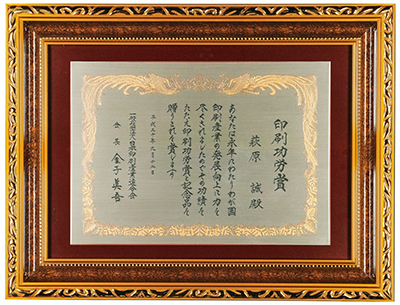 印刷功労賞
萩原 誠殿
あなたは永年にわたりわが国
印刷産業の発展向上に力を
尽くされましたのでその功績を
たたえ印刷功労賞と記念品を
贈りこれを賞します
平成三十年九月十二日
一般社団法人日本印刷産業連合会
会長 金子眞吾